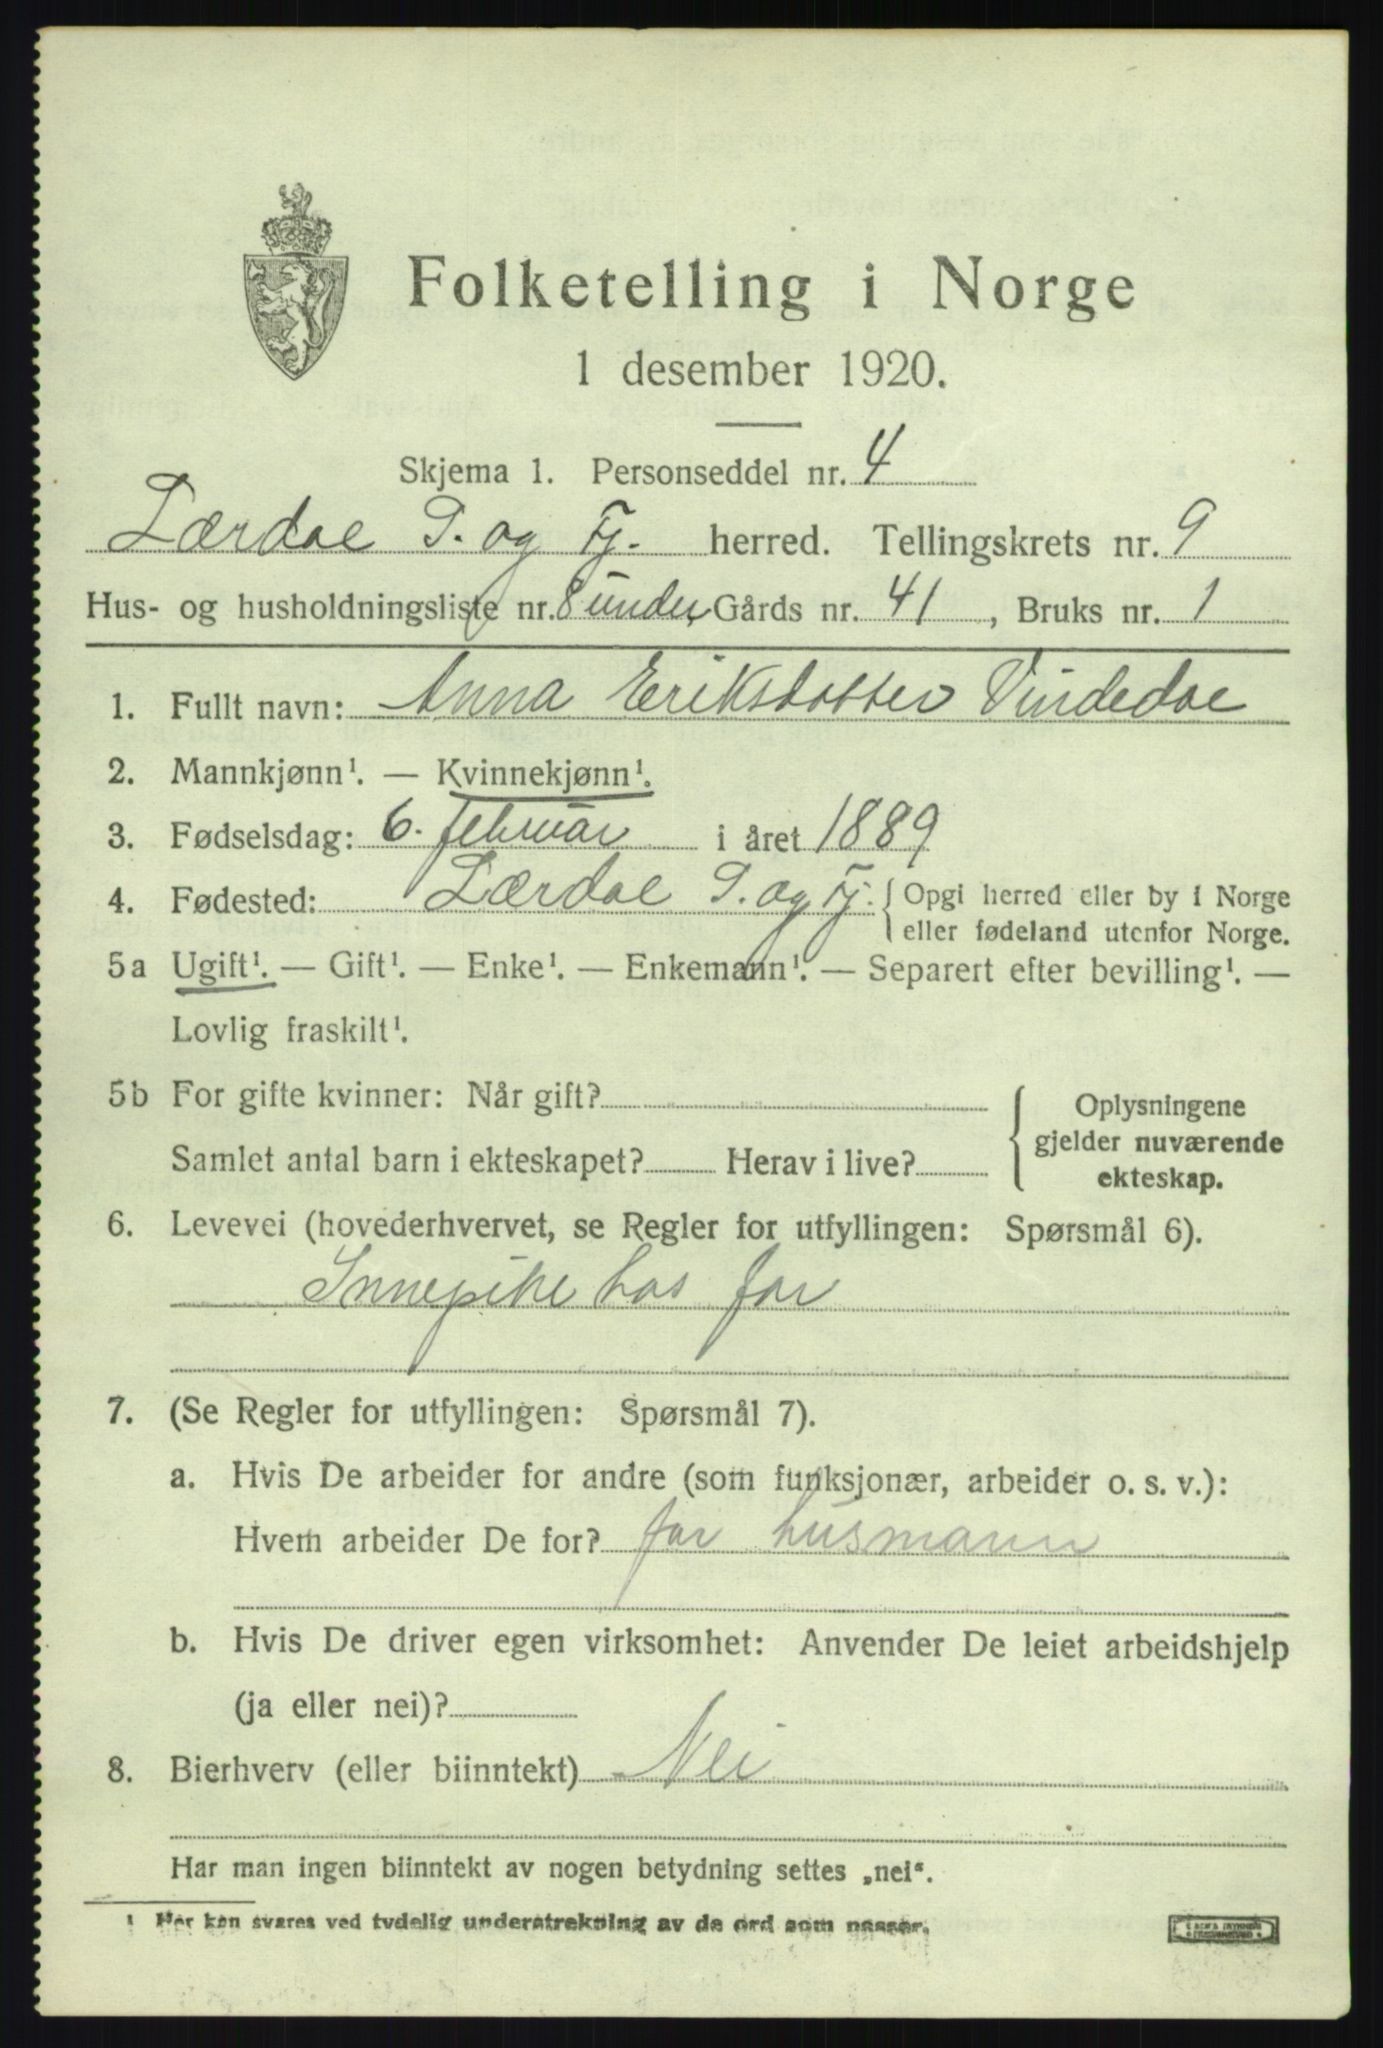 Folketelling i Norge
1 desember 1920.
Skjema 1. Personseddel nr. 4
Lærdal S. og Fj. herred. Tellingskrets nr. 9
Hus- og husholdningsliste nr. 8 under Gårds nr. 41, Bruks nr. 1
1. Fullt navn: Anna Eriksdotter Vindedal
2. Mannkjønn¹. — Kvinnekjønn¹.
3. Fødselsdag: 6. februar i året 1889
4. Fødested: Lærdal S. og Fj. { Opgi herred eller by i Norge
eller fødeland utenfor Norge.
5a Ugift¹. — Gift¹. — Enke¹. — Enkemann¹. — Separert efter bevilling¹. —
Lovlig fraskilt¹.
5b For gifte kvinner: Når gift? { Oplysningene
gjelder nuværende
Samlet antal barn i ekteskapet? Herav i live? ekteskap.
6. Levevei (hovederhvervet, se Regler for utfyllingen: Spørsmål 6).
Innepike hos far
7. (Se Regler for utfyllingen: Spørsmål 7).
a. Hvis De arbeider for andre (som funksjonær, arbeider o. s. v.):
Hvem arbeider De for? far husmann
b. Hvis De driver egen virksomhet: Anvender De leiet arbeidshjelp
(ja eller nei)?
8. Bierhverv (eller biinntekt) Nei
Har man ingen biinntekt av nogen betydning settes „nei“.
¹ Her kan svares ved tydelig understrekning av de ord som passer.